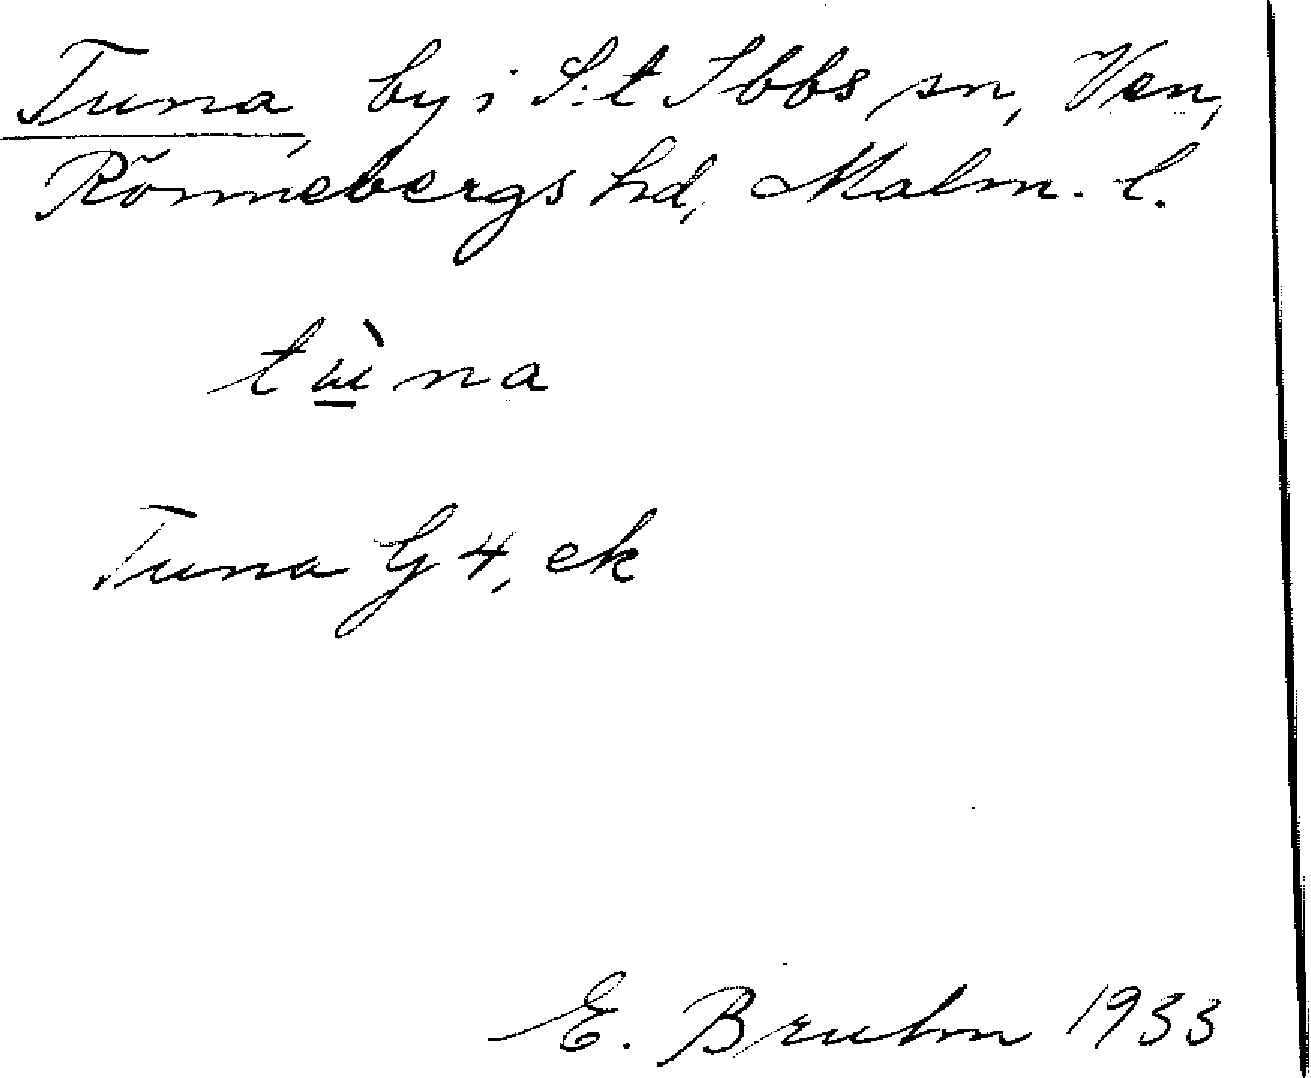 Tuna, by i S:t Ibbs sn, Ven,
Rönnebergs hd, Malm. l.
tɯ̀na
Tuna G 4, ek
E. Bruhn 1933